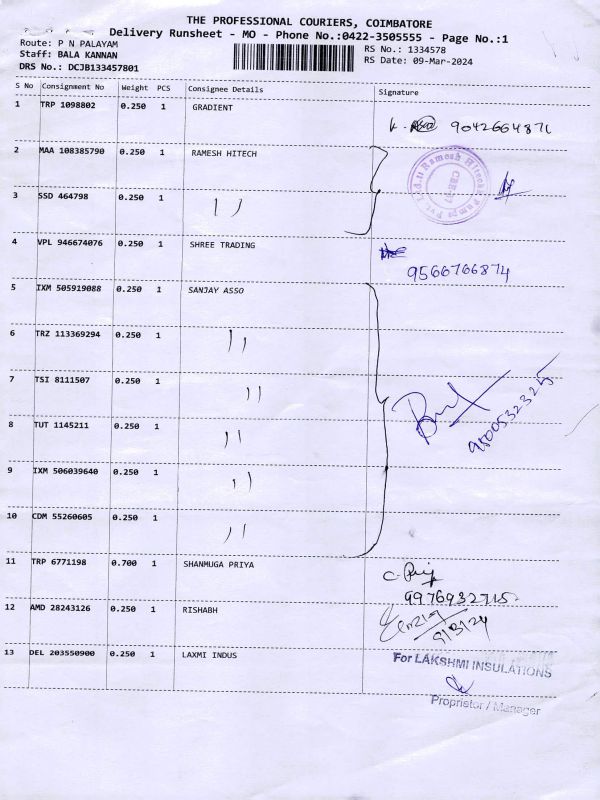 THE PROFESSIONAL COURIERS, COIMBATORE
Delivery Runsheet - MO - Phone No.:0422-3505555 - Page No.:1
Route: P N PALAYAM
RS No.: 1334578
Staff: BALA KANNAN
RS Date: 09-Mar-2024
DRS No.: DCJB133457801
S No Consignment No Weight PCS Consignee Details Signature
1 TRP 1098802 0.250 1 GRADIENT
9042664871
2 MAA 108385790 0.250 1 RAMESH HITECH
3 SSD 464798 0.250 1 ,,
4 VPL 946674076 0.250 1 SHREE TRADING
9566766874
5 IXM 505919088 0.250 1 SANJAY ASSO
6 TRZ 113369294 0.250 1 ,,
7 TSI 8111507 0.250 1 ,,
8 TUT 1145211 0.250 1 ,,
9 IXM 506039640 0.250 1 ,,
10 CDM 55260605 0.250 1 ,,
9500532325
11 TRP 6771198 0.700 1 SHANMUGA PRIYA
9976932715
12 AMD 28243126 0.250 1 RISHABH
9/3/24
13 DEL 203550900 0.250 1 LAXMI INDUS
For LAKSHMI INSULATIONS
Proprietor / Manager